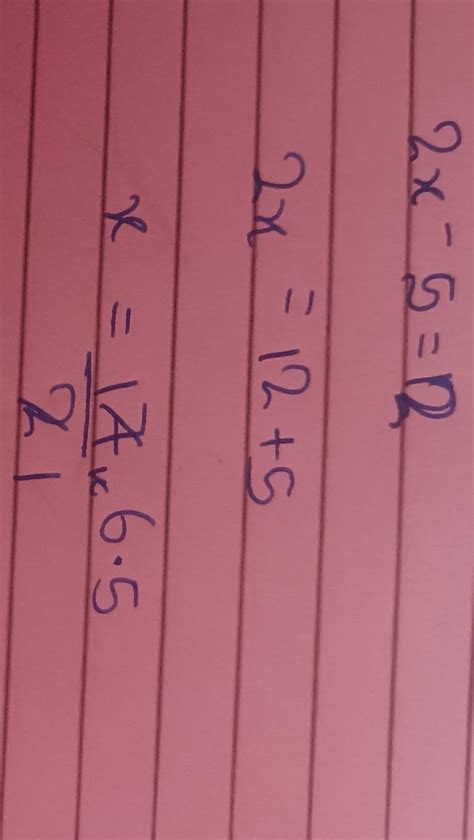 2x - 5 = 12
2x = 12 + 5
x = 17 6.5
2 1